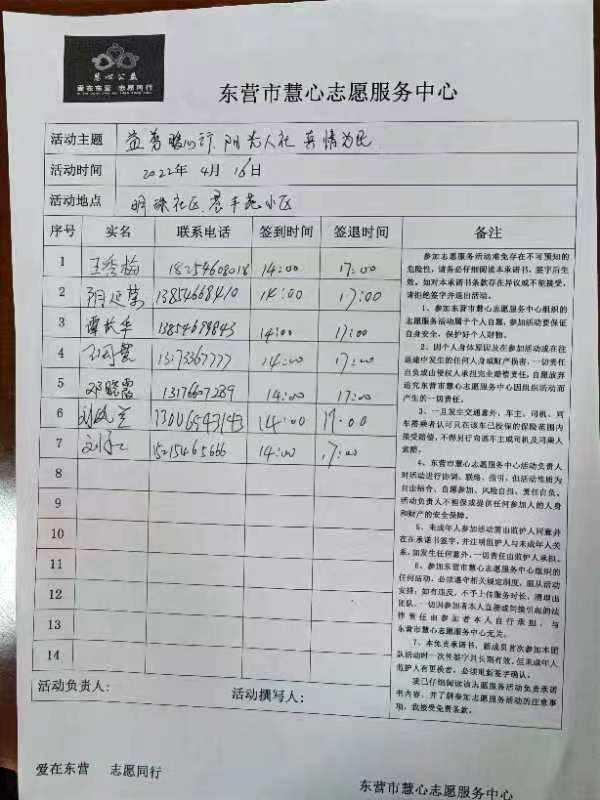 慧心公益
爱在东营 志愿同行
东营市慧心志愿服务中心
活动主题 益剪暖心行 阳光人社 真情为民
活动时间 2022年4月16日
活动地点 明珠社区 小区
序号 实名 联系电话 签到时间 签退时间 备注
1 王秀梅 18254608018 14:00 17:00
2 13854668410 14:00 17:00
3 13854689843 14:00 17:00
4 13173367777 14:00 17:00
5 邓晓霞 13176607289 14:00 17:00
6 13006543143 14:00 17:00
7 15215465666 14:00 17:00
8
9
10
11
12
13
14
参加志愿服务活动难免存在不可预知的
危险性,请务必仔细阅读本承诺书,签字后生
效。如对本承诺书条款存在异议或不能接受,
请拒绝签字并退出活动。
1、参加东营市慧心志愿服务中心组织的
志愿服务活动属于个人自愿,参加活动要保证
自身安全,保护好个人财物。
2、因个人身体原因及在参加活动或在往
返途中发生的任何人身或财产损害,一切责任
自负或由侵权人承担完全赔偿责任,自愿放弃
追究东营市慧心志愿服务中心因组织活动而
产生的一切责任。
3、一旦发生交通意外,车主、司机、同
车搭乘者认可只在该车已投保的保险范围内
接受赔偿,不得另行向该车主或司机及同乘人
索赔。
4、东营市慧心志愿服务中心活动负责人
对活动进行协调、联络、指引,但活动性质为
自由结合、自愿参加、风险自担、责任自负。
活动负责人不担保或提供任何参加人的人身
和财产的安全保障。
5、未成年人参加活动需由监护人同意并
在在承诺书签字,并注明监护人与未成年人关
系,如发生任何意外,一切责任由监护人承担。
6、参加东营市慧心志愿服务中心组织的
任何活动,必须遵守相关规定制度,服从活动
安排;如有违反,不予上传服务时长、清理出
团队,一切因参加者本人直接或间接引起的法
律责任由参加者本人自行承担,与
东营市慧心志愿服务中心无关。
7、本免责承诺书,新成员首次参加本团
队活动时一次性签字且长期有效,但未成年人
监护人有更换者,必须重新签字确认。
我已仔细阅读该志愿服务活动免责承诺
书内容,并了解参加志愿服务活动的注意事
项,我接受免责条款。
活动负责人: 活动撰写人:
爱在东营 志愿同行
东营市慧心志愿服务中心